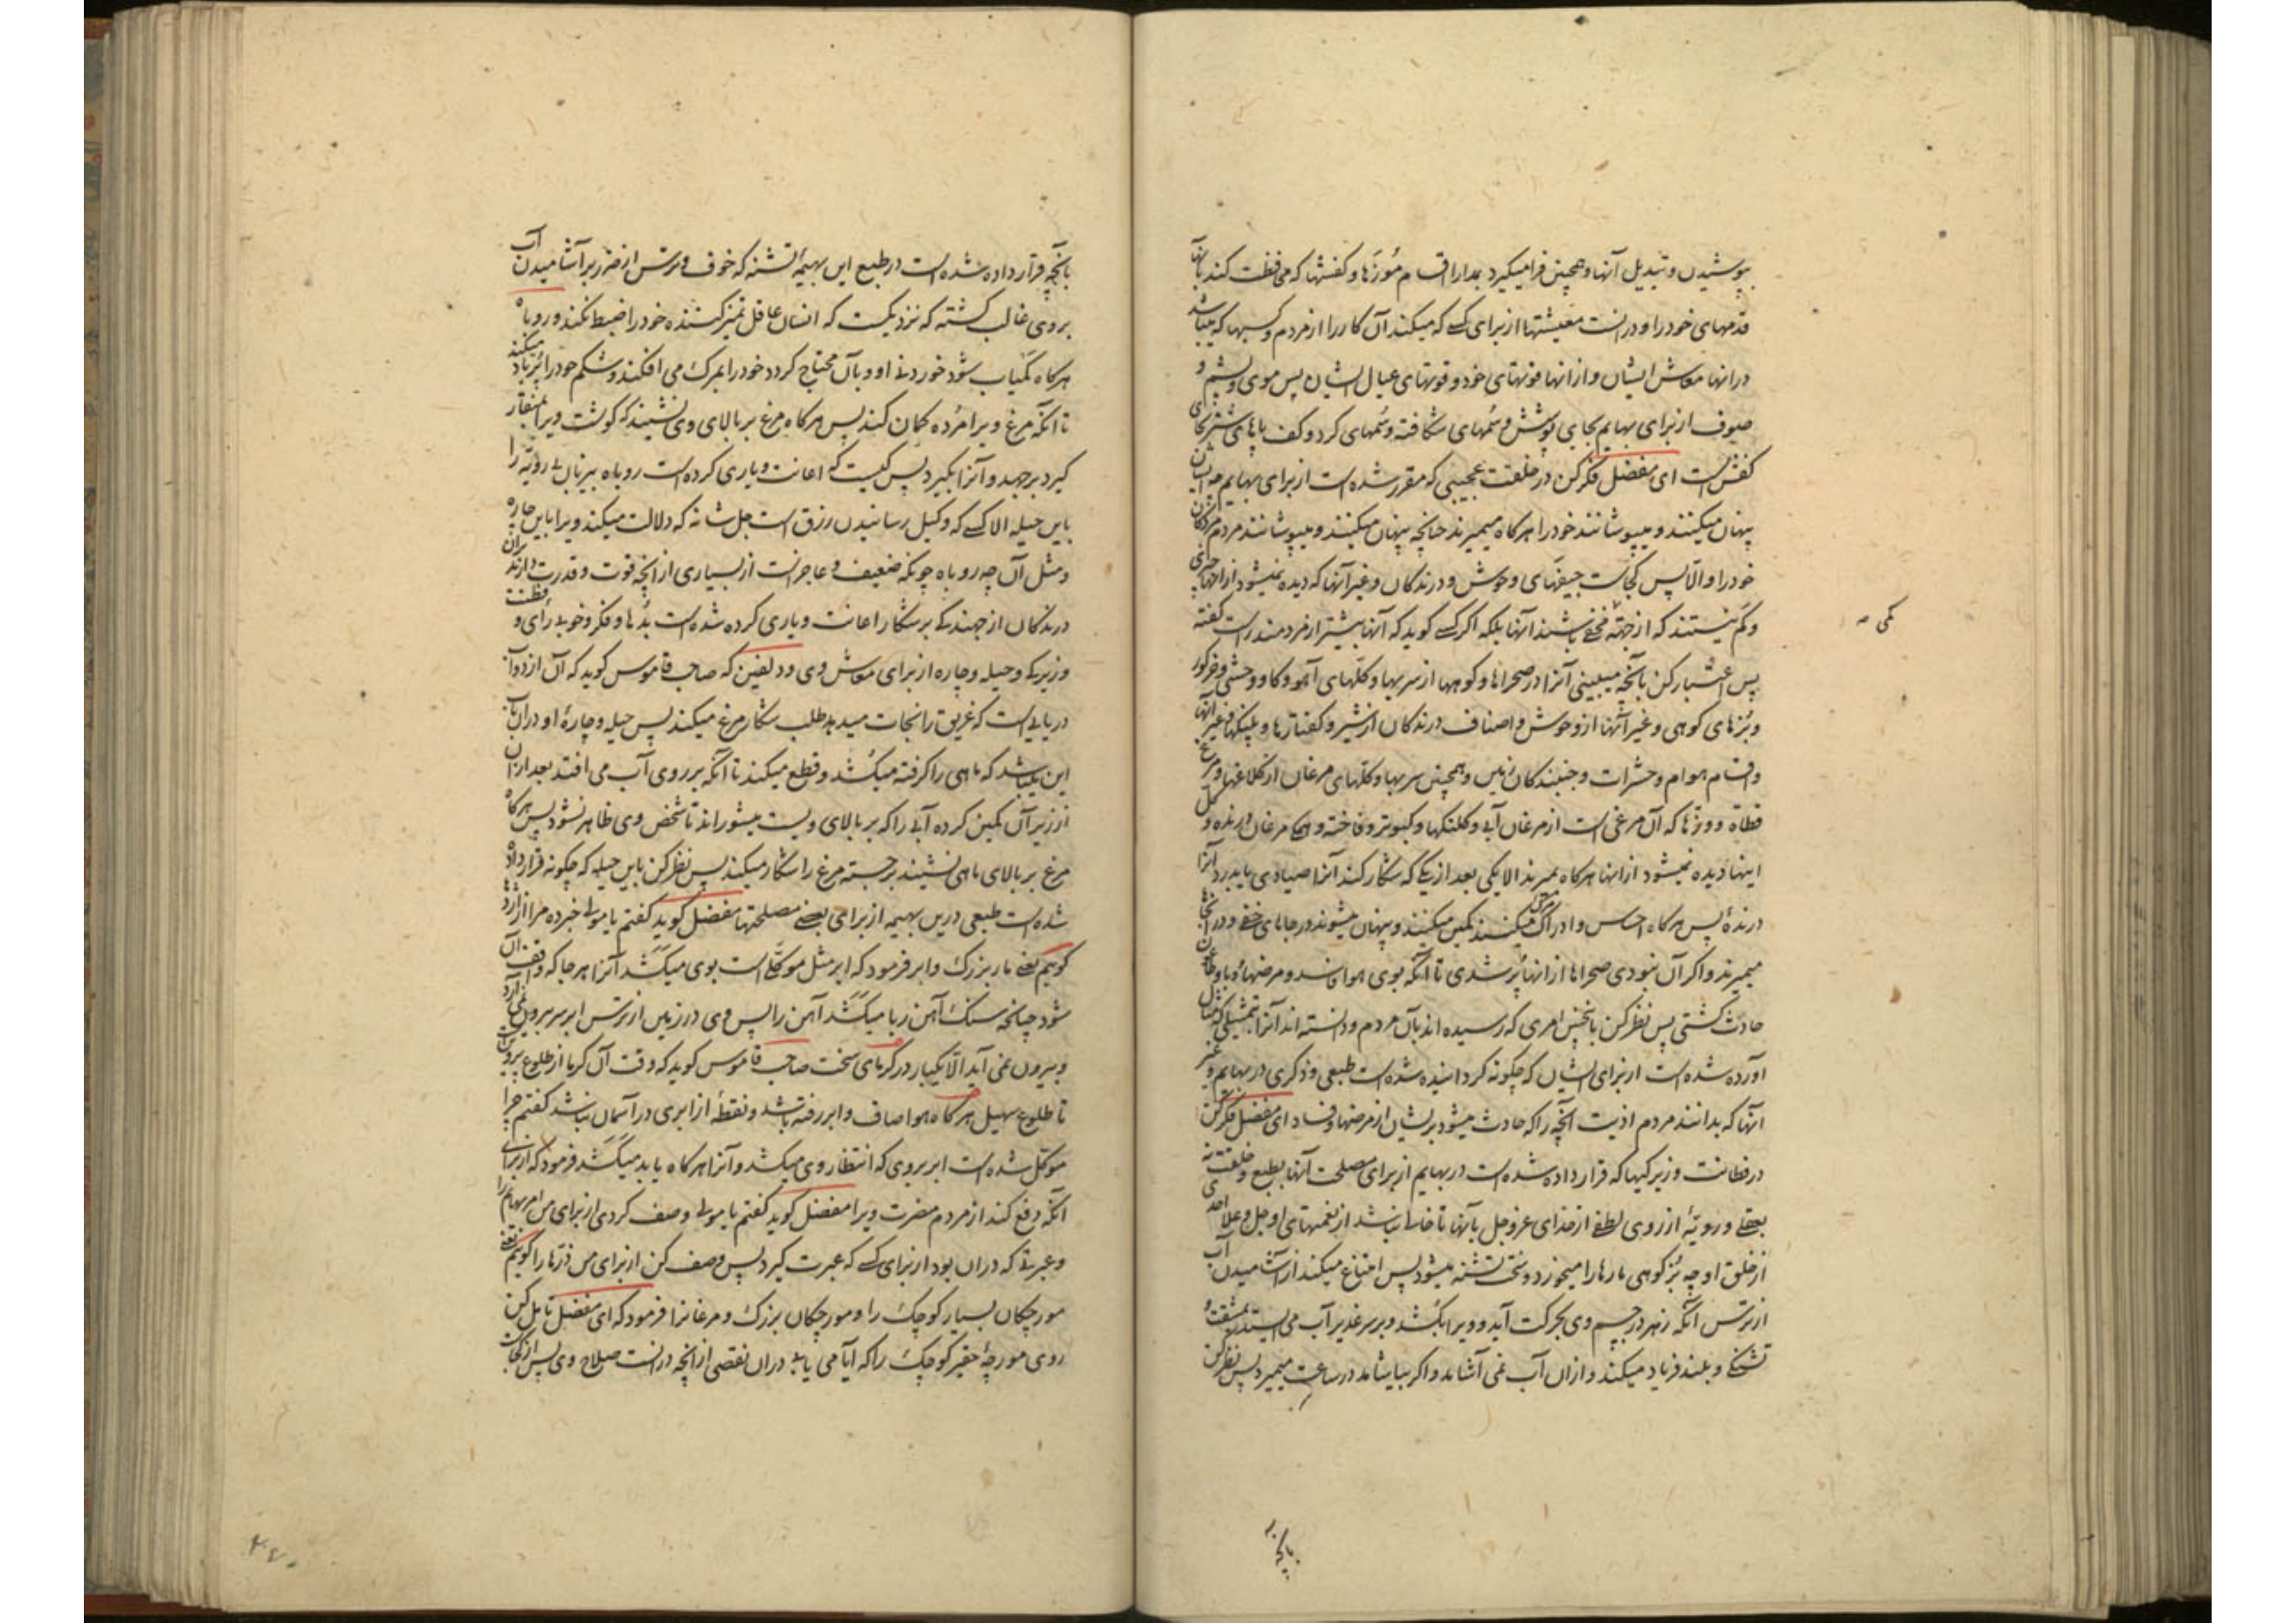 بپوشیدن و تبدیل آنها و همچنین فرامیگیرد بمدارا اقسام موزها و کفشها که محافظت کند بآنها
قدمهای خود را و درانست معیشتها از برای کسی که میکند آن کار را از مردم و کسبها که میباشد
درانها معاش ایشان و از انها قوتهای خود و قوتهای عیال ایشان پس موی و پشم و
صوف از برای بهایم بجای پوشش و سُمهای شکافته و سُمهای کرد و کف پاهای شتر بجای
کفش است ای مفضل فکر کن در خلقت عجیبی که مقرر شده است از برای بهایم چه ایشان
پنهان میکنند و میپوشانند خود را هرکاه میمیرند چنانچه پنهان میکنند و میپوشانند مردم مردکان
خود را و الّا پس کجاست جیفهای وحوش و درندکان و غیر آنها که دیده نمیشود از انها چیزی
و کم نیستند که از جهة کمی مخفی باشند آنها بلکه اکر کسی کوید که آنها بیشتر از مردمند راست کفته
پس اعتبار کن بآنچه میبینی آنرا در صحراها و کوهها از سربها و کلهای آهو و کاو وحشی و خرکور
و بُزهای کوهی و غیر آنها از وحوش و اصناف درندکان از شیر و کفتارها و پلنکها و غیر آنها
و اقسام هوام و حشرات و جنبندکان زمین و همچنین سربها و کلهای مرغان از کلاغها و مرغ
قطاة و وزها که آن مرغی است از مرغان آبی و کلنکها و کبوتر و فاخته و همه مرغان درنده و کل
اینها دیده نمیشود از انها هرکاه بمیرند الا یکی بعد از یکی که شکار کند آنرا صیادی یا بدرد آنرا
درندهٔ پس هرکاه احساس و ادراک مرک میکنند کمین میکنند و پنهان میشوند در جاهای خفی و در آنجاها
میمیرند و اکر آن نبودی صحراها از انها پُر شدی تا آنکه بوی هوا فاسد و مرضها و وبا و طاعون
حادث کشتی پس نظر کن باینچنین امری که رسیده اند بآن مردم و دانسته اند آنرا بتمثیلی که مثال
آورده شده است از برای ایشان که چکونه کردانیده شده است طبعی و ذکری در بهایم و غیر
انها که بدانند مردم اذیت آنچه را که حادث میشود بر ایشان از مرضها و فساد ای مفضل فکر کن
در فطانت و زیرکیها که قرار داده شده است در بهایم از برای مصلحت آنها بطبع و خلقت نه
بعقلی و رویّهٔ از روی لطفی از خدای عز و جل بآنها تا خالی نباشد از نعمتهای او جل و علا احدی
از خلق او چه بُز کوهی مارها را میخورد و سخت تشنه میشود پس امتناع میکند از آشامیدن آب
از ترس آنکه زهر در جسم وی بحرکت آید و ویرا بکُشد و بر سر غدیر آب می ایستد بمشقت
تشنکی و بلند فریاد میکند و از ان آب نمی آشامد و اکر بیاشامد در ساعت میمیرد پس نظر کن
کمی صح
بآنچه
بآنچه قرار داده شده است در طبع این بهیمهٔ تشنه که خوف و ترس از ضرر بر آشامیدن آب
بر وی غالب کشته که نزدیکست که انسان عاقل تمیز کننده خود را ضبط نکند و روباه
هرکاه کمیاب شود خوردنی او و بآن محتاج کردد خود را بمرک می افکند و شکم خود را پُرباد میکند
تا آنکه مرغ ویرا مُرده کمان کند پس هرکاه مرغ بر بالای وی نشیند که کوشت ویرا بمنقار
کیرد برجهد و آنرا بکیرد پس کیست که اعانت و یاری کرده است روباه بیزبان بی رویّه را
باین حیله الا کسی که وکیل رسانیدن رزق است جل شانه که دلالت میکند ویرا باین چاره
و مثل آن چه روباه چونکه ضعیف و عاجز است از بسیاری از آنچه قوت و قدرت دارند بران
درندکان از جهندکی بر شکار اعانت و یاری کرده شده است بدُها و فکر و خوبی رای و فطنت
و زیرکی و حیله و چاره از برای معاش وی و دلفین که صاحب قاموس کوید که آن از دواب
دریایی است که غریق را نجات میدهد طلب شکار مرغ میکند پس حیله و چارهٔ او دران باب
این میباشد که ماهی را کرفته میکُشد و قطع میکند تا آنکه بر روی آب می افتد بعد ازان
از زیر آن کمین کرده آبی را که بر بالای ویست میشوراند تا شخص وی ظاهر نشود پس هرکاه
مرغ بر بالای ماهی نشیند برجسته مرغ را شکار میکند پس نظر کن باین حیله که چکونه قرار داده
شده است طبعی درین بهیمه از برای بعضی مصلحتها مفضل کوید کفتم یا مولی خبر ده مرا از اژدها
کویم یعنی مار بزرک و ابر فرمود که ابر مثل موکلی است بوی میکَشد آنرا هر جا که واقف آن
شود چنانچه سنک آهن ربا میکَشد آهن را پس وی در زمین از ترس ابر سر بیرون نمی آرد
و بیرون نمی آید الّا یکبار در کرمای سخت صاحب قاموس کوید که وقت آن کرما از طلوع پروین است
تا طلوع سهیل هرکاه هوا صاف و ابر رفته باشد و نقطهٔ از ابری در آسمان نباشد کفتم چرا
موکل شده است ابر بر وی که انتظار وی میکشد و آنرا هرکاه یابد میکَشد فرمود که از برای
آنکه دفع کند از مردم مضرت ویرا مفضل کوید کفتم یا مولی وصف کردی از برای من امر بهایم را
و عبرتی که دران بود از برای کسی که عبرت کیرد پس وصف کن از برای من ذرها را کویم یعنی
مورچکان بسیار کوچک را و مورچکان بزرک و مرغانرا فرمود که ای مفضل تامل کن
روی مورچهٔ حقیر کوچک را که آیا می یابی دران نقصی از آنچه درانست صلاح وی پس از کجاست